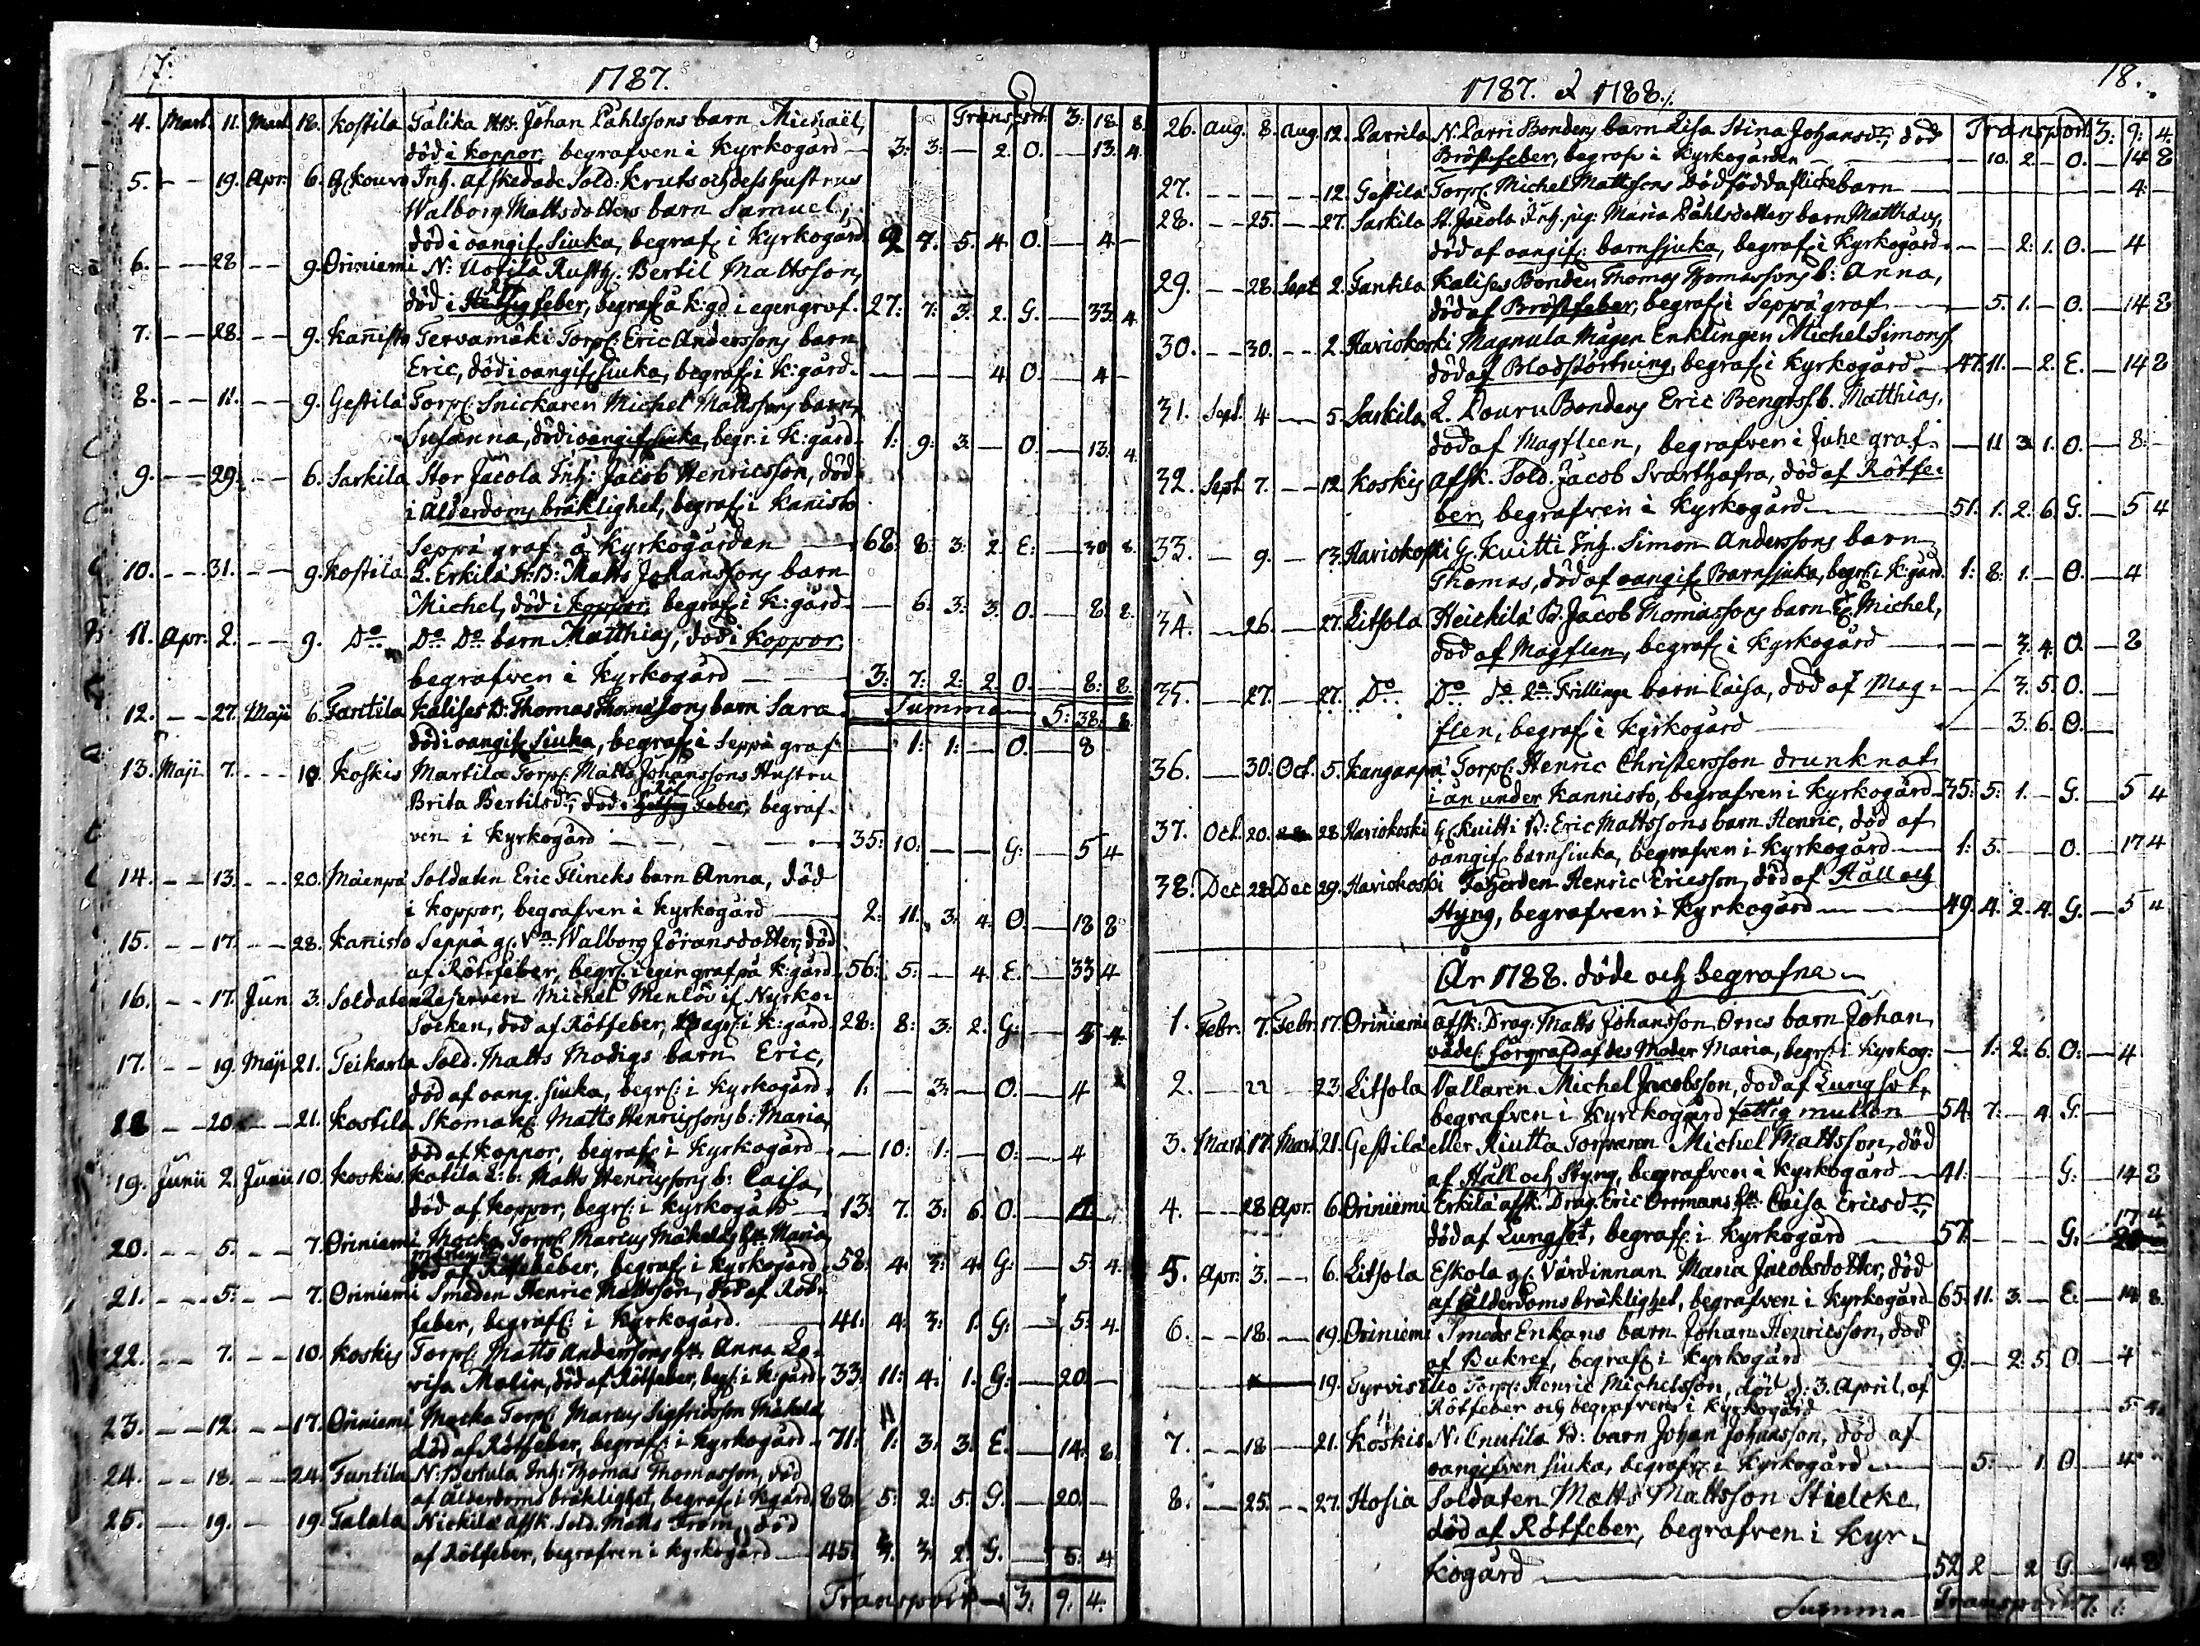 17.
1787.
Transport. 3: 18. 8.
4. Mart. 11. Mart. 18. Kostila Talika Johan Påhlssons barn Michaël,
död i koppor, begrafven i Kyrkogård — 3: 3: — 2. O. — 13. 4
5. — 19. Apr. 6. Inh. afskedade Sold. Kruts och dess hustrus
Walborg Mattsdotters barn Samuel,
död i oangif. siuka, begraf. i Kyrkogård 7. 5. 4. O. — 4 —
6. — 28 — 9. Oriniemi N: Uotila Rusth. Bertil Mattsson,
död i feber, begraf. å k:gd i egen graf. 27: 7: 3. 2. G. — 33. 4
7. — 28. — 9. Kanisto Tervamäki Torp. Eric Anderssons barn
Eric, död i oangif. siuka, begraf. i K:gård. — 4 O. — 4 —
8. — 11. — 9. Gestilä Torp. Snickaren Michel Mattssons barn
Susanna, död i oangif. siuka, begr. i K:gård. 1: 9: 3: — O. — 13: 4
9. — 29. — 6. Sarkila Stor Jacola Inh: Jacob Henricsson, död
i ålderdoms bräklighet, begraf. i Kanisto
Seppä graf å Kyrkogården — 68: 8: 3: 2. E: — 30 8
10. — 31. — 9. Kostila L. Erkilä Matts Johanssons barn
Michel, död i koppor, begraf. i K:gård. — 6: 3: 3. O. — 8: 8:
11. Apr. 2. — 9. Do Do Do barn Matthias, död i koppor,
begrafven i Kyrkogård — 3: 7: 2: 2. O. — 8: 8
Summa 5: 38: 8
12. — 27. Maji 6. Fantila Kalises B: Thomas Thomssons barn Sara
död i oangif. siuka, begraf. i Seppä graf — 1: 1: — O. — 8
13. Maji 7. — 10. Koskis Martila Torp. Matts Johanssons Hustru
Brita Bertilsdr, död i feber, begraf-
ven i Kyrkogård — 35: 10: — G: — 5 4
14. — 13. — 20. Mäenpä Soldaten Eric Flincks barn Anna, död
i koppor, begrafven i Kyrkogård — 2: 11. 3: 4. O. — 18 8
15. — 17. — 28. Kanisto Seppä Walborg Jöransdotter, död
af Rötfeber, begr. i egen graf på K:gård. 56: 5: — 4. E: — 33 4
16. — 17. Jun. 3. Soldaten Michel Menlös if. Nyrko-
Socken, död af Rötfeber, i K:gård. 28: 8: 3: 2. G: — 5 4
17. — 19. Maji 21. Teikarla Sold. Matts Modigs barn Eric,
död af oang. siuka, begr. i Kyrkogård. 1: — 3: — O. — 4
18 — 20 — 21. Kostila Skomak. Matts Henricssons b: Maria,
död af koppor, begraf. i Kyrkogård — 10: 1: — O: — 4
19. Junii 2. Junii 10. Koskis Katila Matts Henricssons b: Caisa,
död af koppor, begr. i Kyrkogård — 13: 7. 3: 6. O. —
20. — 5: — 7. Oriniemi Mocka Torp. Marcus Mäkeläs h. Maria
död af Rötfeber, begraf. i Kyrkogård. 58: 4: 3: 4. G: — 5: 4.
21. — 5: — 7. Oriniemi Smeden Henric Mattsson, död af Röt-
feber, begraf. i Kyrkogård. — 41: 4: 3: 1. G: — 5: 4.
22. — 7. — 10. Koskis Torp. Matts Anderssons h. Anna Lo-
visa Malin, död af Rötfeber, begr. i K:gård, 33: 11: 4: 1. G: — 20: —
23. — 12. — 17. Oriniemi Mocka Torp. Marcus Sigfridsson Mäkelä,
död af Rötfeber, begraf. i Kyrkogård — 71: 1: 3: 3: E. — 14: 8.
24. — 18. — 24. Funtila N: Bertula Inh: Thomas Thomasson, död
af ålderdoms bräklighet, begraf. i Kgård 88: 5: 2: 5. G. — 20: —
25. — 19. — 19. Talala Nickilä afsk. Sold. Matts From, död
af Rötfeber, begrafven i Kyrkogård — 45: 3. 3: 2. G. — 5: 4
Transport — 3: 9: 4.
18.
1787. & 1788.
Transport 3: 9: 4.
26. Aug. 8. Aug. 12. Parrila N. Parri Bondens barn Lisa Stina Johansdr, död
Bröstfeber, begraf. i Kyrkogården — 10. 2 — O. — 14 8
27. — 12. Gestilä Torp. Michel Mattssons Dödfödda flickebarn — 4: —
28. — 25. — 27. Sarkila St. Jacola Inh. pig. Maria Påhlsdotters barn Matthæus,
död af oangif. barnsjuka, begraf. i Kyrkogård. — 2: 1. O. — 4
29. — 28. Sept 2. Fantila Kalises Bonden Thomas Thomassons b: Anna,
död af Bröstfeber, begraf. i Seppä graf — 5. 1. — O. — 14 8
30. — 30. — 2. Haviokoski Magnula Mågen Enklingen Michel Simons.
död af Blodstörtning, begraf. i Kyrkogård — 47. 11. — 2. E. — 14 8
31. Sept. 4 — 5. Sarkila L. Louru Bondens Eric Bengtss. b. Matthias,
död af Magfleen, begrafven i Juhe graf. — 11 3 1. O. — 8: —
32. Sept 7. — 12. Koskis Afsk. Sold. Jacob Svarthafra, död af Rötfe-
ber, begrafven i Kyrkogård — 51. 1. 2: 6. G. — 5 4
33. — 9. — 13. Haviokoski G. Kuitti Inh. Simon Anderssons barn
Thomas, död af oangif. Barnsjuka, begr. i K:gård. 1: 8: 1. — O. — 4
34. — 26. — 27. Litsola Heickilä B. Jacob Thomassons barn Michel,
död af Magflen, begraf. i Kyrkogård — 3. 4. O. — 8
35. — 27. — 27. Do Do do Trillinge barn Caisa, död af Mag- — 3. 5. O. —
flen, begraf. i Kyrkogård — 3. 6. O. —
36. — 30. Oct. 5. Kanganpä Torp. Henric Christersson drunknat
i ån under Kannisto, begrafven i Kyrkogård — 35: 5: 1. — G. — 5 4
37. Oct. 20. — 28. Haviokoski G. Kuitti B: Eric Mattssons barn Henric, död af
oangif. barnsiuka, begrafven i Kyrkogård — 1: 5. — O. — 17 4
38. Dec. 22. Dec. 29. Haviokoski Henric Ericsson, död af Håll och
Styng, begrafven i Kyrkogård — 49. 4. 2. 4. G. — 5 4
År 1788. döde och begrafne
1. Febr. 7. Febr. 17. Oriniemi afsk: Drag: Matts Johansson Orres barn Johan
Moder Maria, begr. i Kyrkog: — 1: 2: 6. O: — 4
2. — 22 — 23. Litsola Vallaren Michel Jacobsson, död af Lungsot,
begrafven i Kyrckogård fattig mullen — 54. 7: — 4. G: —
3. Mart. 17. Mart. 21. Gestilä eller Riutta Torparen Michel Mattsson, död
af Håll och Styng, begrafven i Kyrkogård — 41: — G: — 14 8
4. — 28 Apr. 6. Oriniemi Erkilä afsk. Drag. Eric Orrmans h. Caisa Ericsdr,
död af Lungsot, begraf. i Kyrkogård — 57. — G: — 17 4
5. Apr. 3. — 6. Litsola Eskola g. Värdinnan Maria Jacobsdotter, död
af ålderdoms bräklighet, begrafven i Kyrkogård 65. 11. 3. — E. — 14 8.
6. — 18. — 19. Oriniemi Smeds Enkans barn Johan Henricsson, död
af Bukref, begraf. i Kyrkogård — 9: — 2: 5. O. — 4
— 19. Tyrvis Torp: Henric Michelsson, död d: 3. April, af
Rötfeber och begrafven i Kyrkogård — 5. 4
7. — 18 — 21. Koskis N: Cnutila B: barn Johan Johansson, död af
oangifven siuka, begraf. i Kyrkogård — 5: — 1. O. — 4
8. — 25. — 27. Hosia Soldaten Matts Mattsson Stielcke,
död af Rötfeber, begrafven i Kyr-
kogård — 52 2 — 2 G. — 14 8
Summa Transport 7: 1: